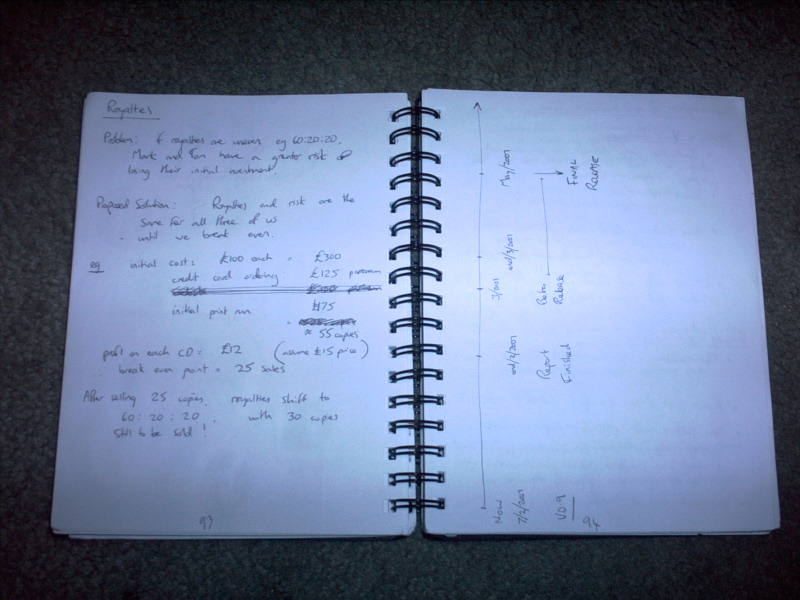 Royalties
Problem: if royalties are uneven eg 60:20:20,
Mark and Ian have a greater risk of
losing their initial investment.
Proposed Solution: Royalties and risk are the
same for all three of us
until we break even.
eg initial cost: £100 each = £300
credit card ordering £125 per annum
initial print run £175
≈ 55 copies
profit on each CD = £12 (assume £15 price)
∴ break even point = 25 sales
After selling 25 copies, royalties shift to
60:20:20, with 30 copies
still to be sold!
93
Now
7/2/2001
V0.9
end/2/2001
Report
Finished
3/2001
end/3/2001
Beta
Release
May/2001
FINAL
RELEASE
94